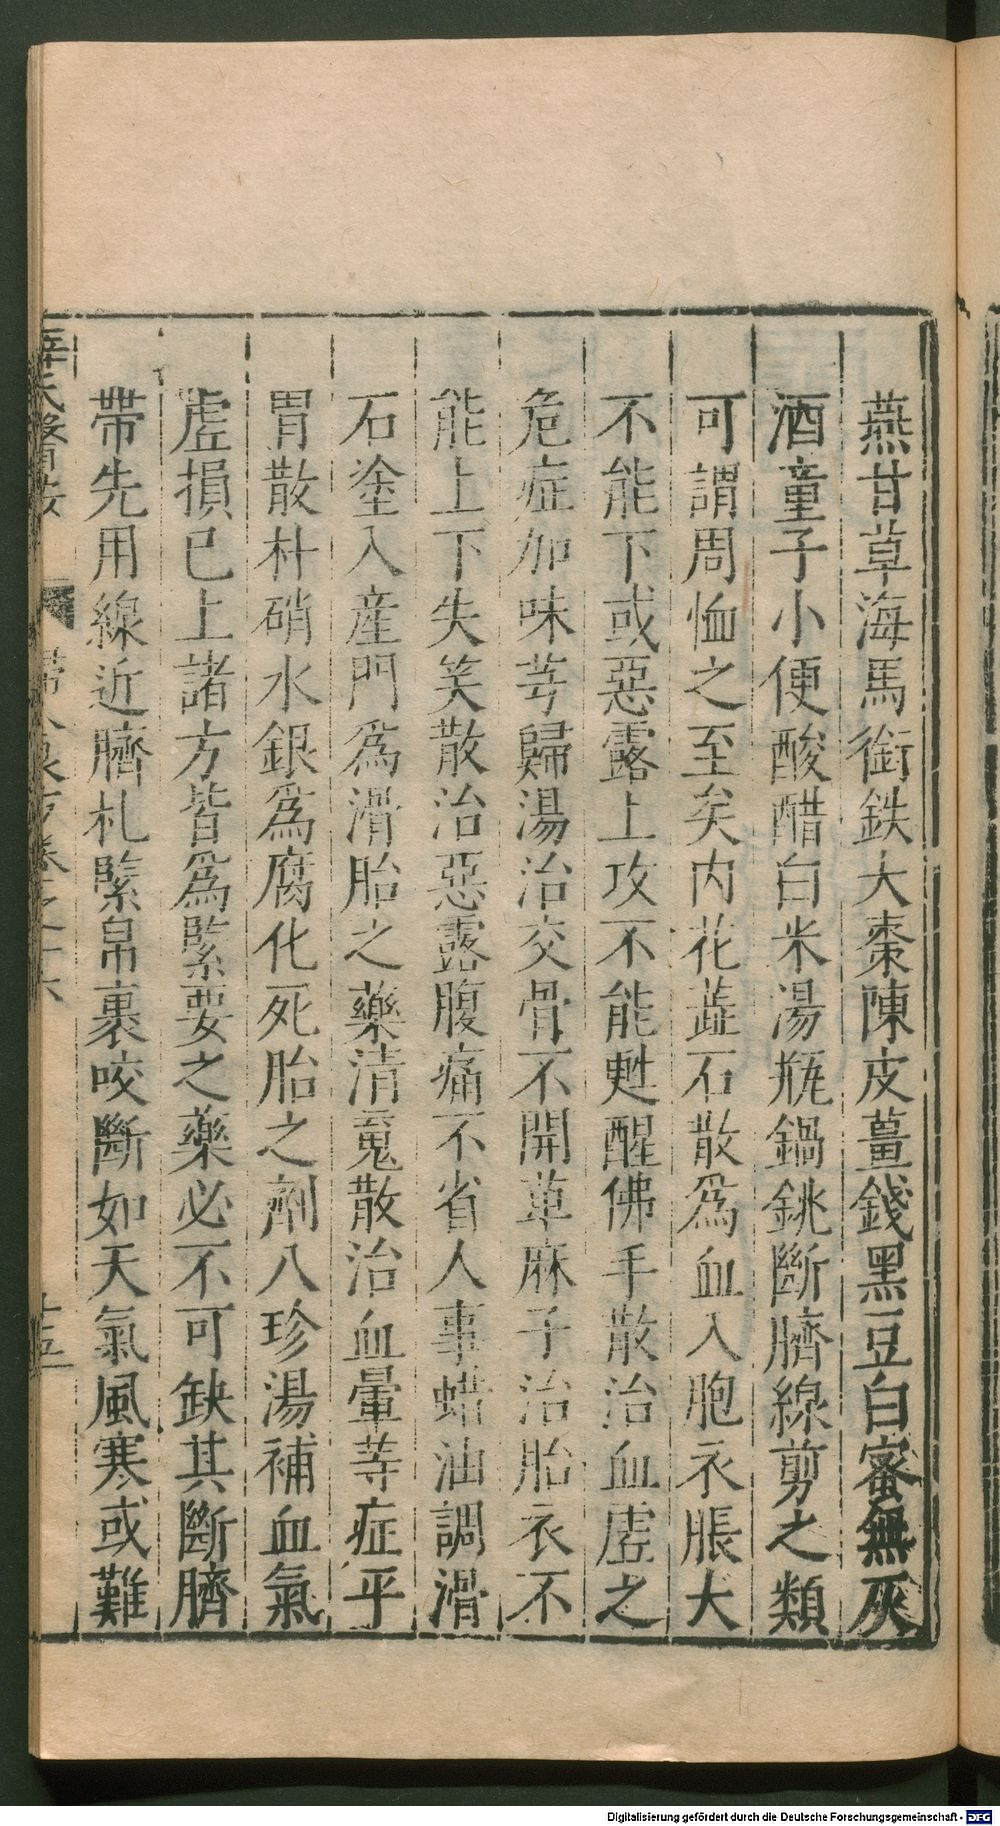 燕甘草海馬銜鉄大棗陳皮薑錢黑豆白蜜無灰
酒童子小便酸醋白米湯瓶鍋銚斷臍線剪之類
可謂周恤之至矣内花蕋石散爲血入胞衣脹大
不能下或惡露上攻不能甦醒佛手散治血虚之
危症加味芎歸湯治交骨不開萆麻子治胎衣不
能上下失笑散治惡露腹痛不省人事蜡油調滑
石塗入産門爲滑胎之藥清䰟散治血暈等症平
胃散朴硝水銀爲腐化死胎之劑八珍湯補血氣
虚損已上諸方皆爲緊要之藥必不可缺其斷臍
帶先用線近臍札緊帛裹咬斷如天氣風寒或難
薛氏醫按
婦人良方卷之十六
十五
Digitalisierung gefördert durch die Deutsche Forschungsgemeinschaft - DFG